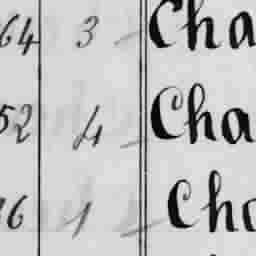 64 3 Cha
52 4 Cha
16 1 Cho